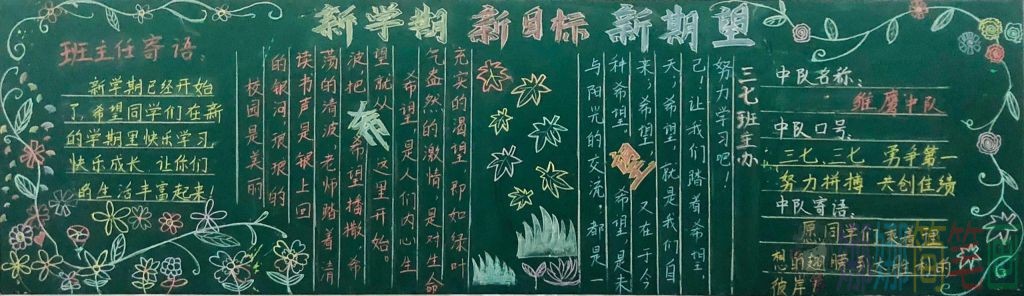 新学期 新目标 新期望
班主任寄语：
新学期已经开始
了，希望同学们在新
的学期里快乐学习，
快乐成长 让你们
的生活丰富起来！
校园是美丽
的银河，琅琅的
读书声是碧上回
荡的清波，老师踏着清
波，把希望播撒，希
望就从这里开始。
希望，是人们内心生
气盎然的激情，是对生命
充实的渴望，即如绿叶
希
望
与阳光的交流；都是一
种希望。希望，是未
来，希望，又在于今
天，希望，就是我们自
己！让我们踏着希望，
努力学习吧！
三七班主办
中队名称：
雏鹰中队
中队口号：
三七，三七 勇争第一
努力拼搏 共创佳绩
中队寄语：
愿同学们乘着理
想的翅膀到达胜利的
彼岸